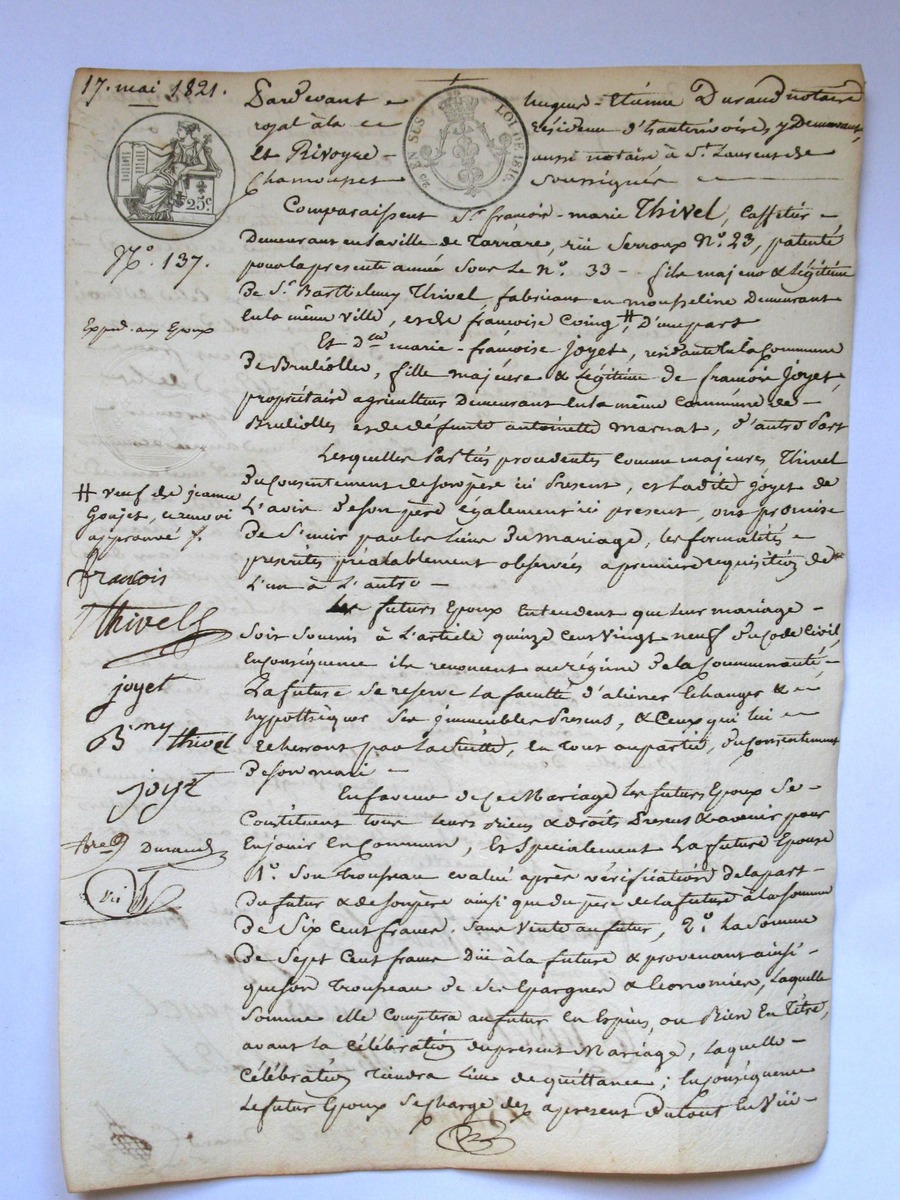 17. mai 1821.
Pardevant hugues-Etienne Durand notaire
royal à la résidence d'hauterivoire, y Demeurant,
et Rivoyre aussi notaire à St. Laurent de
Chamousset soussignés
EN SUS LOI DE 1816.
25c
N.o 137.
Exped. aux Epoux
Comparaissent Sr. françois-marie Thivel, Caffetier
Demeurant en la ville de Tarrare, rüe Serroux N.o 23, patenté
pour la presente année sous le N.o 33 - fils majeur & légitime
De Sr. Barthelemy Thivel, fabricant en mousseline demeurant
en la même ville, et de francoise Coing # D'une part
Et Dlle marie-françoise joyet, residante en la Commune
de Brulliolles, fille majeure & légitime de francois joyet,
propriétaire agriculteur Demeurant en la même Commune de
Brulliolles et de défunte antoinette marnat, d'autre Part
Lesquelles Parties procedentes comme majeures, Thivel
du Consentement de son père ici Present, et ladite joyet de
L'avis de son père également ici present, ont promis
De s'unir par les liens du mariage, les formalités
prescrites préalablement observées a premiere requisition de
L'un à L'autre
Les futurs Epoux Entendent que leur mariage
soit soumis à L'article quinze Cent Vingt neuf du Code Civil,
En conséquence ils renoncent au régime de la Communauté
La future se reserve la faculté d'aliéner Echanger &
hypothèquer ses immeubles Presents, & Ceux qui lui
Echerront par la suitte, en tout ou partie, du consentement
de son mari
En faveur de ce Mariage les futurs Epoux se
Constituent tous leurs Biens & droits Presents & avenir pour
En jouir en Commun, Et spécialement La future Epouse
1.o Son trousseau evalué après vérification de la part
du futur & de son père ainsi que du père de la future à la somme
De Six Cent francs, sans Vente au futur, 2.o La Somme
De Sept Cent francs Düe à la future & provenant ainsi
que son Trousseau de ses Epargnes & Economies, Laquelle
somme elle Comptera au futur en Espèces, ou Bien En Titre,
avant la Célébration du present Mariage, Laquelle
Célébration Tiendra Lieu de quittance; En conséquence
Le futur Epoux se charge dez apresent du tout En Vüe
# veuf de jeanne
Goujet, ce renvoi
approuvé
francois
Thivel
joyet
B.my thivel
joyet
Durand